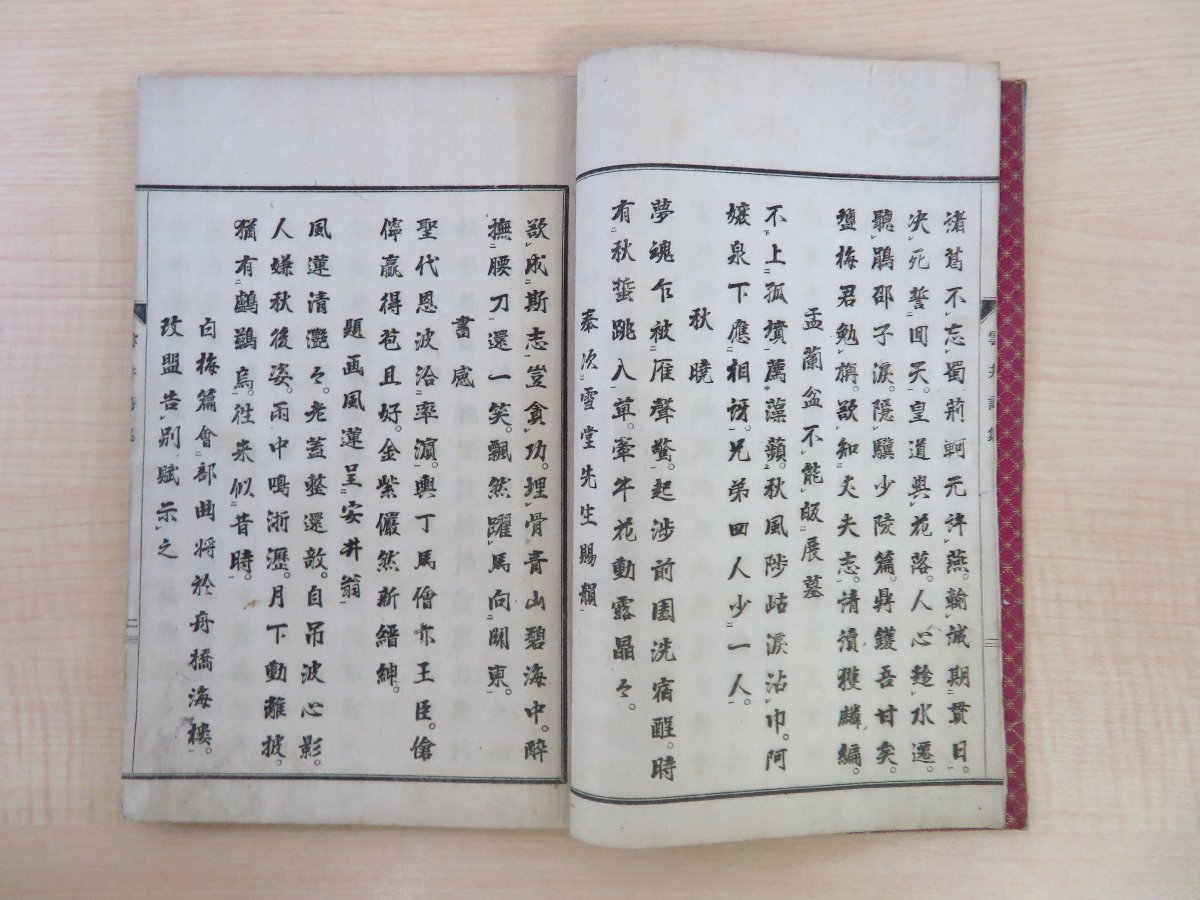 諸葛不忘蜀荊軻元許燕。輸誠期貫日。
決死誓囘天。皇道與花落。人心趁水遷。
聽鵑邵子淚。隱驥少陵篇。鼎鑊吾甘矣。
鹽梅君勉旃。欲知夫夫志。請讀獲麟編。
盂蘭盆不能皈展墓
不上孤墳薦藻蘋。秋風陟岵淚沾巾。阿
孃泉下應相訝。兄弟四人少一人。
秋曉
夢魂乍被雁聲驚。起涉前園洗宿酲。時
有秋蛩跳入草。牽牛花動露晶々。
奉次雪堂先生賜韻
欲成斯志豈貪功。埋骨青山碧海中。醉
撫腰刀還一笑。飄然躍馬向關東。
書感
聖代恩波洽率濱。輿丁馬儈亦王臣。傖
儜贏得苞苴好。金紫儼然新縉紳。
題画風蓮呈安井翁
風蓮清灔々。老蓋整還敧。自吊波心影。
人嫌秋後姿。雨中鳴淅瀝。月下動離披。
猶有鸕鷀鳥。往来似昔時。
白梅篇會部曲将於舟橋海樓。
攷盟告別賦示之